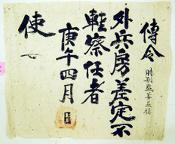 傳令
外兵房差定不
輕察任者
庚午四月
使